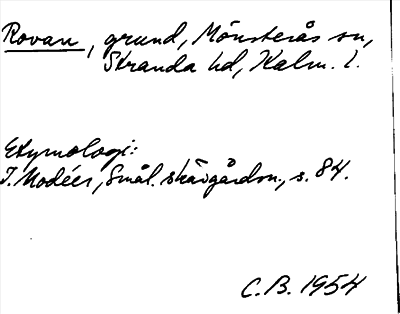 Rovan, grund, Mönsterås sn,
Stranda hd, Kalm. l.
Etymologi:
I. Modéer, Smål. skärgårdsn., s. 84.
C.B. 1954